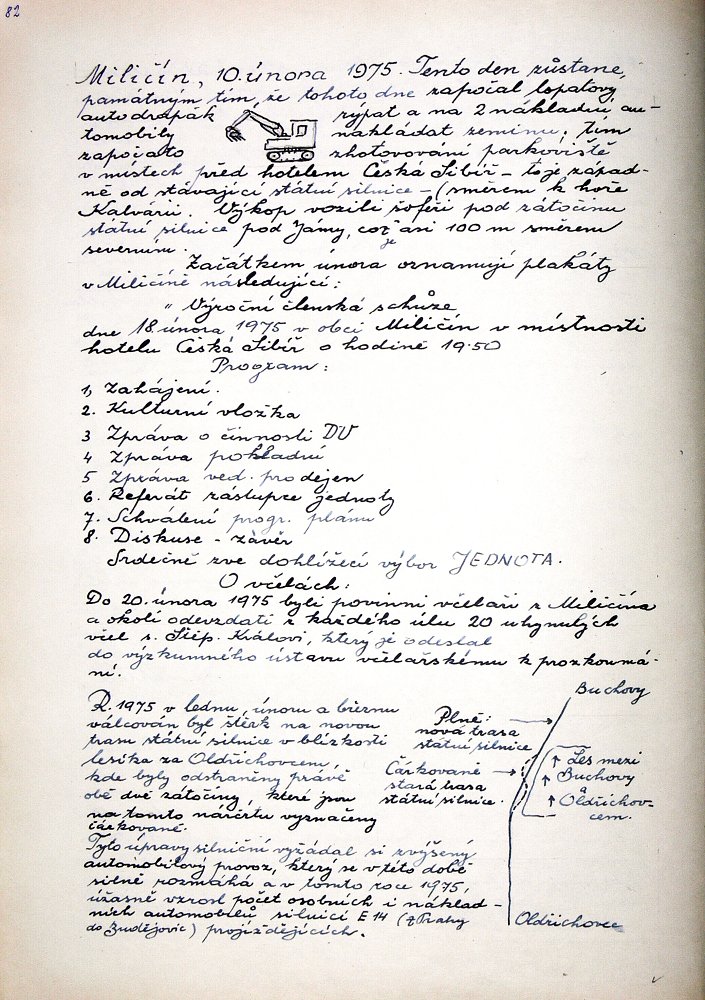 82
Miličín, 10. února 1975. Tento den zůstane,
památným tím, že tohoto dne započal lopatový
autodrapák rypat a na 2 nákladní au-
tomobily nakládat zeminu, tím
započato zhotovování parkoviště
v místech před hotelem Česká Sibiř - to je západ-
ně od stávající státní silnice - (směrem k hoře
Kalvárii. Výkop vozili šoféři pod zátočinu
státní silnice pod Jámy, což je asi 100 m směrem
severním.
Začátkem února oznamují plakáty
v Miličíně následující:
„ Výroční členská schůze
dne 18 února 1975 v obci Miličín v místnosti
hotelu Česká Sibiř o hodině 19.50
Program:
1, Zahájení.
2. Kulturní vložka
3 Zpráva o činnosti DV
4 Zpráva pokladní
5 Zpráva ved. prodejen
6. Referát zástupce jednoty
7. Schválení progr. plánu
8. Diskuse - závěr
Srdečně zve dohlížecí výbor JEDNOTA.
O včelách:
Do 20. února 1975 byli povinni včelaři z Miličína
a okolí odevzdati z každého úlu 20 uhynulých
včel s. Štěp. Královi, který je odeslal
do výzkumného ústavu včelařskému k prozkoumá-
ní.
R. 1975 v lednu, únoru a březnu
válcován byl štěrk na novou
trasu státní silnice v blízkosti
lesíka za Oldřichovcem,
kde byly odstraněny právě
obě dvě zátočiny, které jsou
na tomto náčrtu vyznačeny
čárkovaně.
Tyto úpravy silniční vyžádal si zvýšený
automobilový provoz, který se v této době
silně rozmáhá a v tomto roce 1975,
úžasně vzrostl počet osobních i náklad-
ních automobilů silnicí E 14 (z Prahy
do Budějovic) projíždějících.
Buchovy
Plně:
nová trasa
státní silnice
Čárkovaně
stará trasa
státní silnice.
Les mezi
Buchovy
a
Oldřichov-
cem.
Oldřichovec